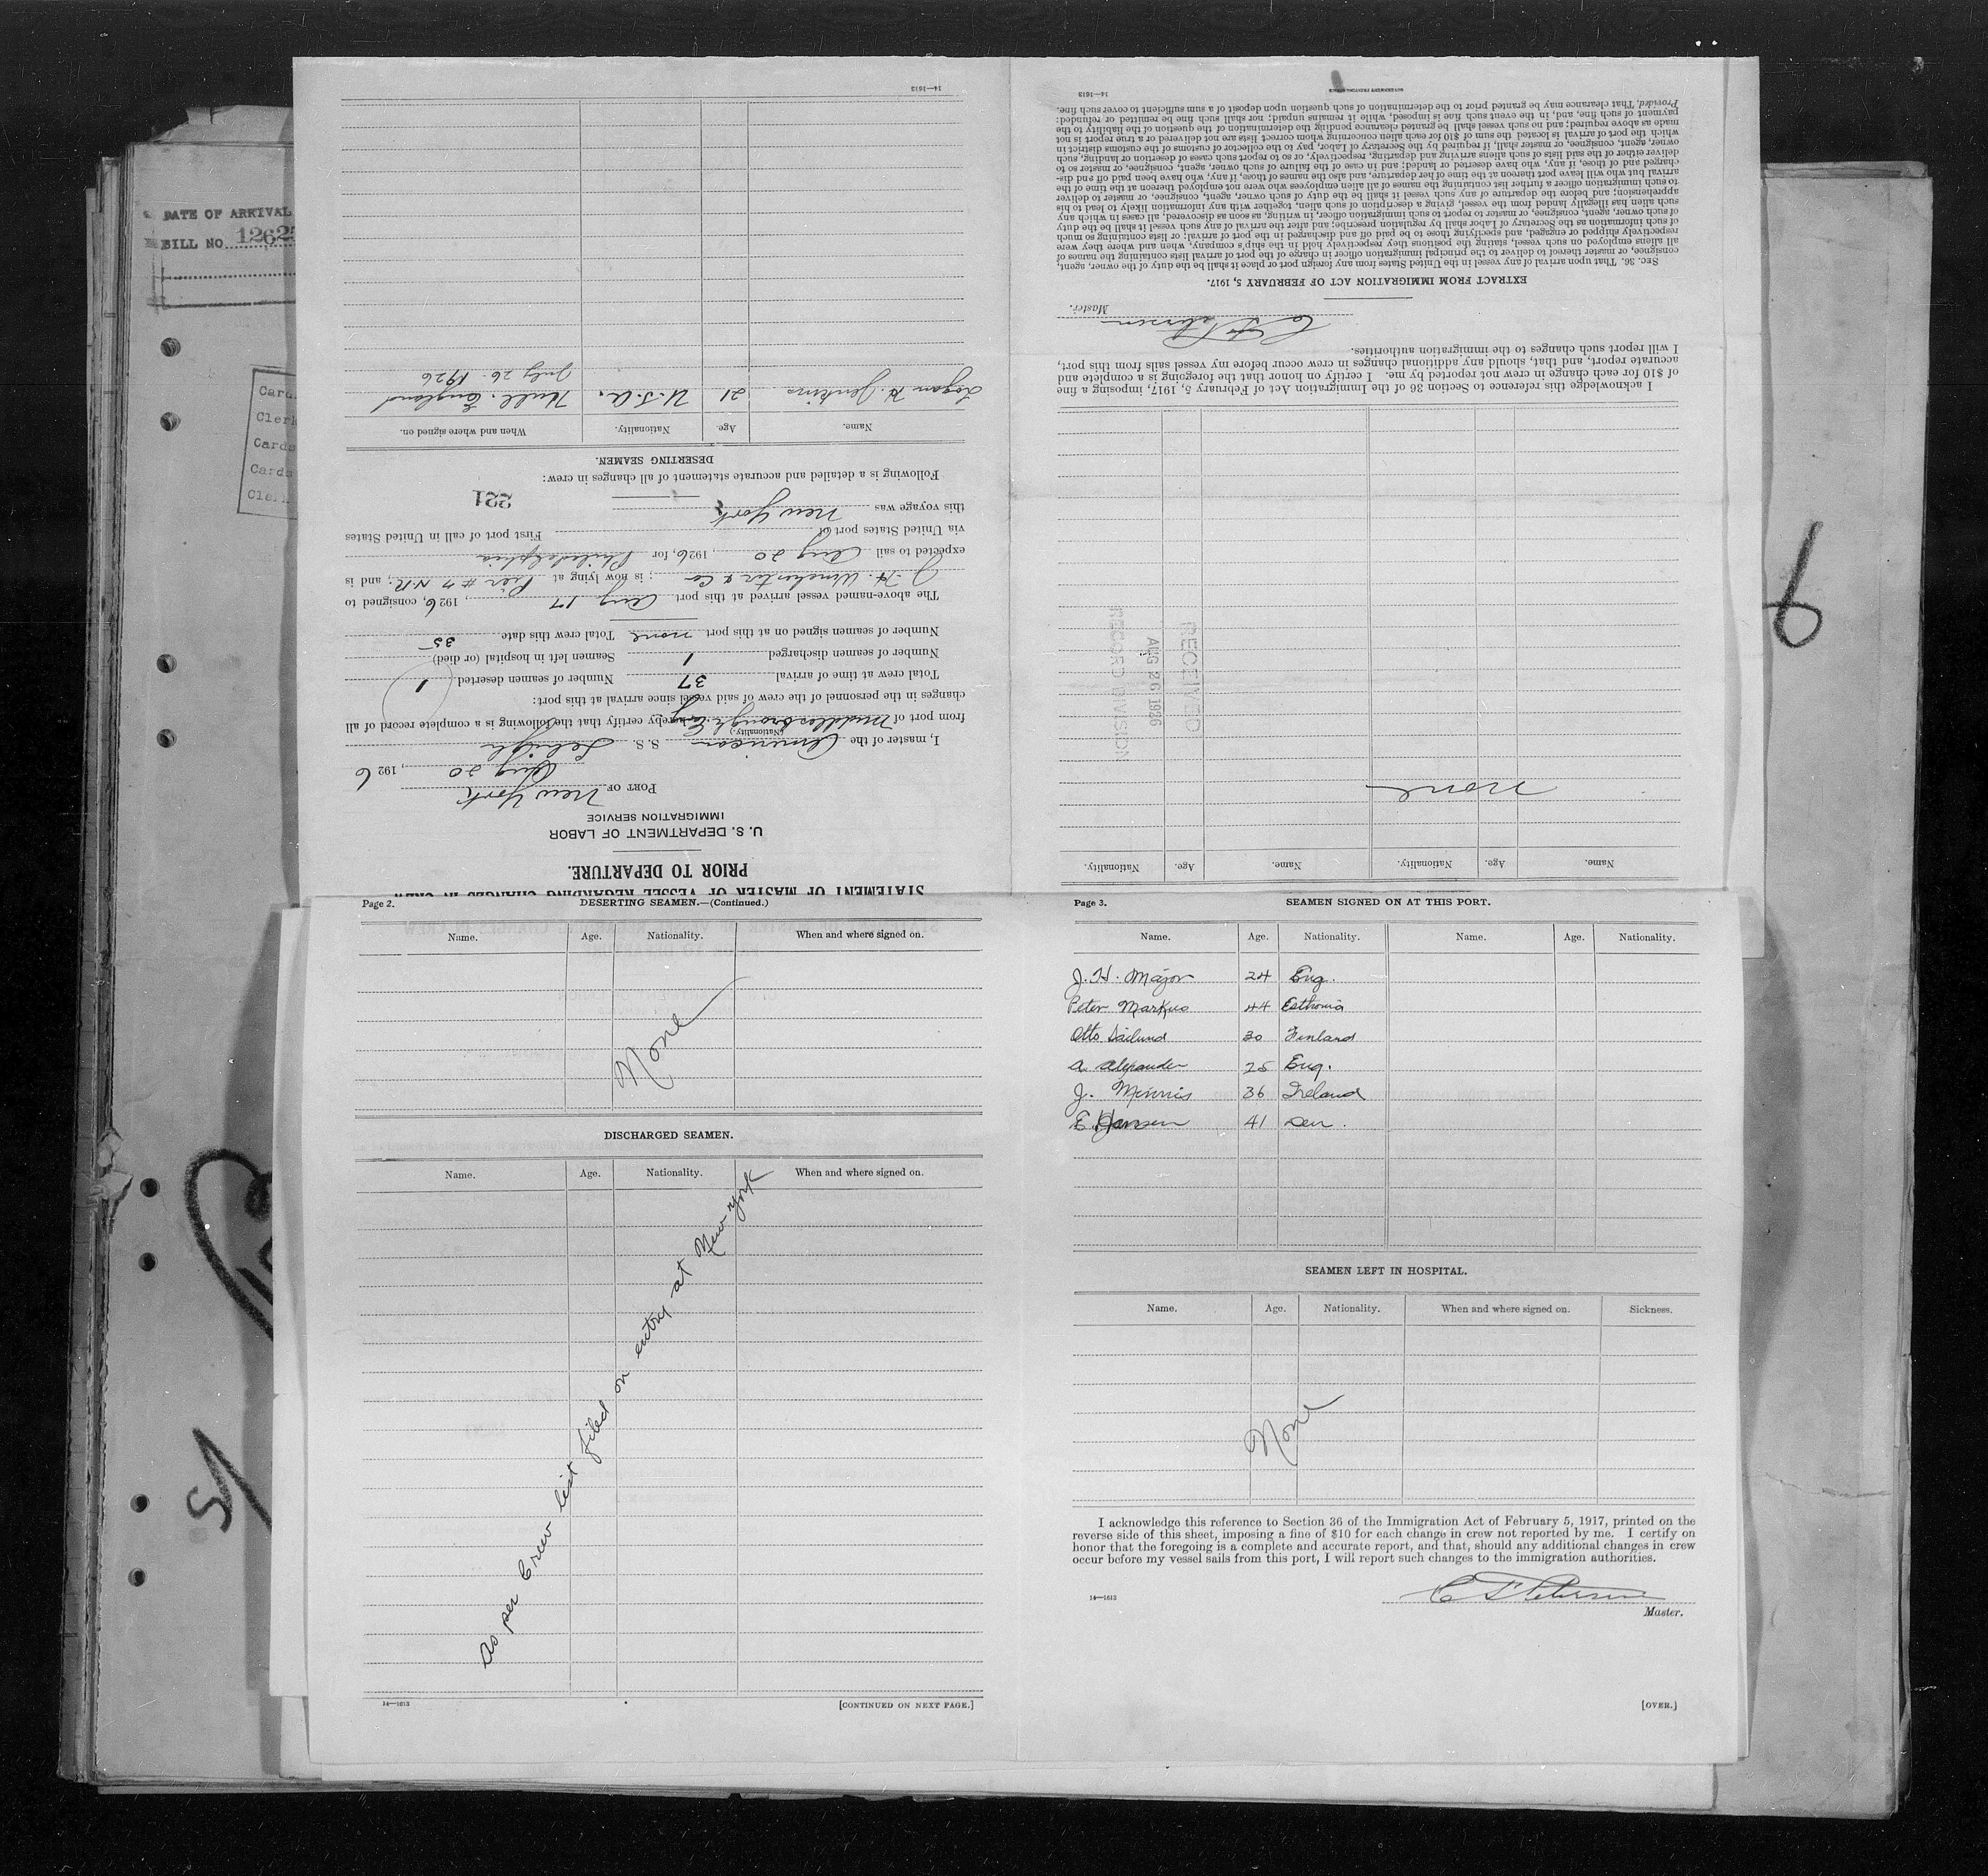 DATE OF ARRIVAL
BILL NO. 1262
Card
Clerk
Cards
Cards
Cler
6
STATEMENT OF MASTER OF VESSEL REGARDING CHANGES IN CREW
PRIOR TO DEPARTURE.
U. S. DEPARTMENT OF LABOR
IMMIGRATION SERVICE
PORT OF New York
Aug 20, 1926
I, master of the American S. S. Lehigh
(Nationality.)
from port of Middlesbrough Eng hereby certify that the following is a complete record of all
changes in the personnel of the crew of said vessel since arrival at this port:
Total crew at time of arrival 37 Number of seamen deserted 1
Number of seamen discharged 1 Seamen left in hospital (or died)
Number of seamen signed on at this port none Total crew this date 35
The above-named vessel arrived at this port Aug 17, 1926, consigned to
J. H. Winchester & Co; is now lying at Pier # 7 N.R.; and is
expected to sail Aug 20, 1926, for Philadelphia
via United States port of First port of call in United States
this voyage was New York
221
Following is a detailed and accurate statement of all changes in crew:
DESERTING SEAMEN.
Name. Age. Nationality. When and where signed on.
Logan H. Jenkins 21 U.S.A. Hull. England
July 26. 1926
14—1613
Name. Age. Nationality. Name. Age. Nationality.
none
RECEIVED
AUG 26 1926
RECORD DIVISION
I acknowledge this reference to Section 36 of the Immigration Act of February 5, 1917, imposing a fine
of $10 for each change in crew not reported by me. I certify on honor that the foregoing is a complete and
accurate report, and that, should any additional changes in crew occur before my vessel sails from this port,
I will report such changes to the immigration authorities.
Master.
EXTRACT FROM IMMIGRATION ACT OF FEBRUARY 5, 1917.
SEC. 36. That upon arrival of any vessel in the United States from any foreign port or place it shall be the duty of the owner, agent,
consignee, or master thereof to deliver to the principal immigration officer in charge of the port of arrival lists containing the names of
all aliens employed on such vessel, stating the positions they respectively hold in the ship's company, when and where they were
respectively shipped or engaged, and specifying those to be paid off and discharged in the port of arrival; or lists containing so much
of such information as the Secretary of Labor shall by regulation prescribe; and after the arrival of any such vessel it shall be the duty
of such owner, agent, consignee, or master to report to such immigration officer, in writing, as soon as discovered, all cases in which any
such alien has illegally landed from the vessel, giving a description of such alien, together with any information likely to lead to his
apprehension; and before the departure of any such vessel it shall be the duty of such owner, agent, consignee, or master to deliver
to such immigration officer a further list containing the names of all alien employees who were not employed thereon at the time of the
arrival but who will leave port thereon at the time of her departure, and also the names of those, if any, who have been paid off and dis-
charged and of those, if any, who have deserted or landed; and in case of the failure of such owner, agent, consignee, or master so to
deliver either of the said lists of such aliens arriving and departing, respectively, or so to report such cases of desertion or landing, such
owner, agent, consignee, or master shall, if required by the Secretary of Labor, pay to the collector of customs of the customs district in
which the port of arrival is located the sum of $10 for each alien concerning whom correct lists are not delivered or a true report is not
made as above required; and no such vessel shall be granted clearance pending the determination of the question of the liability to the
payment of such fine, and, in the event such fine is imposed, while it remains unpaid; nor shall such fine be remitted or refunded:
Provided, That clearance may be granted prior to the determination of such question upon deposit of a sum sufficient to cover such fine.
14—1613
GOVERNMENT PRINTING OFFICE
Page 2. DESERTING SEAMEN.—(Continued.)
Name. Age. Nationality. When and where signed on.
None
DISCHARGED SEAMEN.
Name. Age. Nationality. When and where signed on.
as per Crew list filed on entry at New York
14—1613
[CONTINUED ON NEXT PAGE.]
Page 3. SEAMEN SIGNED ON AT THIS PORT.
Name. Age. Nationality. Name. Age. Nationality.
J. H. Major 24 Eng.
Peter Markus 44 Esthonia
Otto 30 Finland
A Alexander 25 Eng.
J. Minnis 36 Ireland
E. Hansen 41 Den.
SEAMEN LEFT IN HOSPITAL.
Name. Age. Nationality. When and where signed on. Sickness.
None
I acknowledge this reference to Section 36 of the Immigration Act of February 5, 1917, printed on the
reverse side of this sheet, imposing a fine of $10 for each change in crew not reported by me. I certify on
honor that the foregoing is a complete and accurate report, and that, should any additional changes in crew
occur before my vessel sails from this port, I will report such changes to the immigration authorities.
14—1613
Master.
[OVER.]